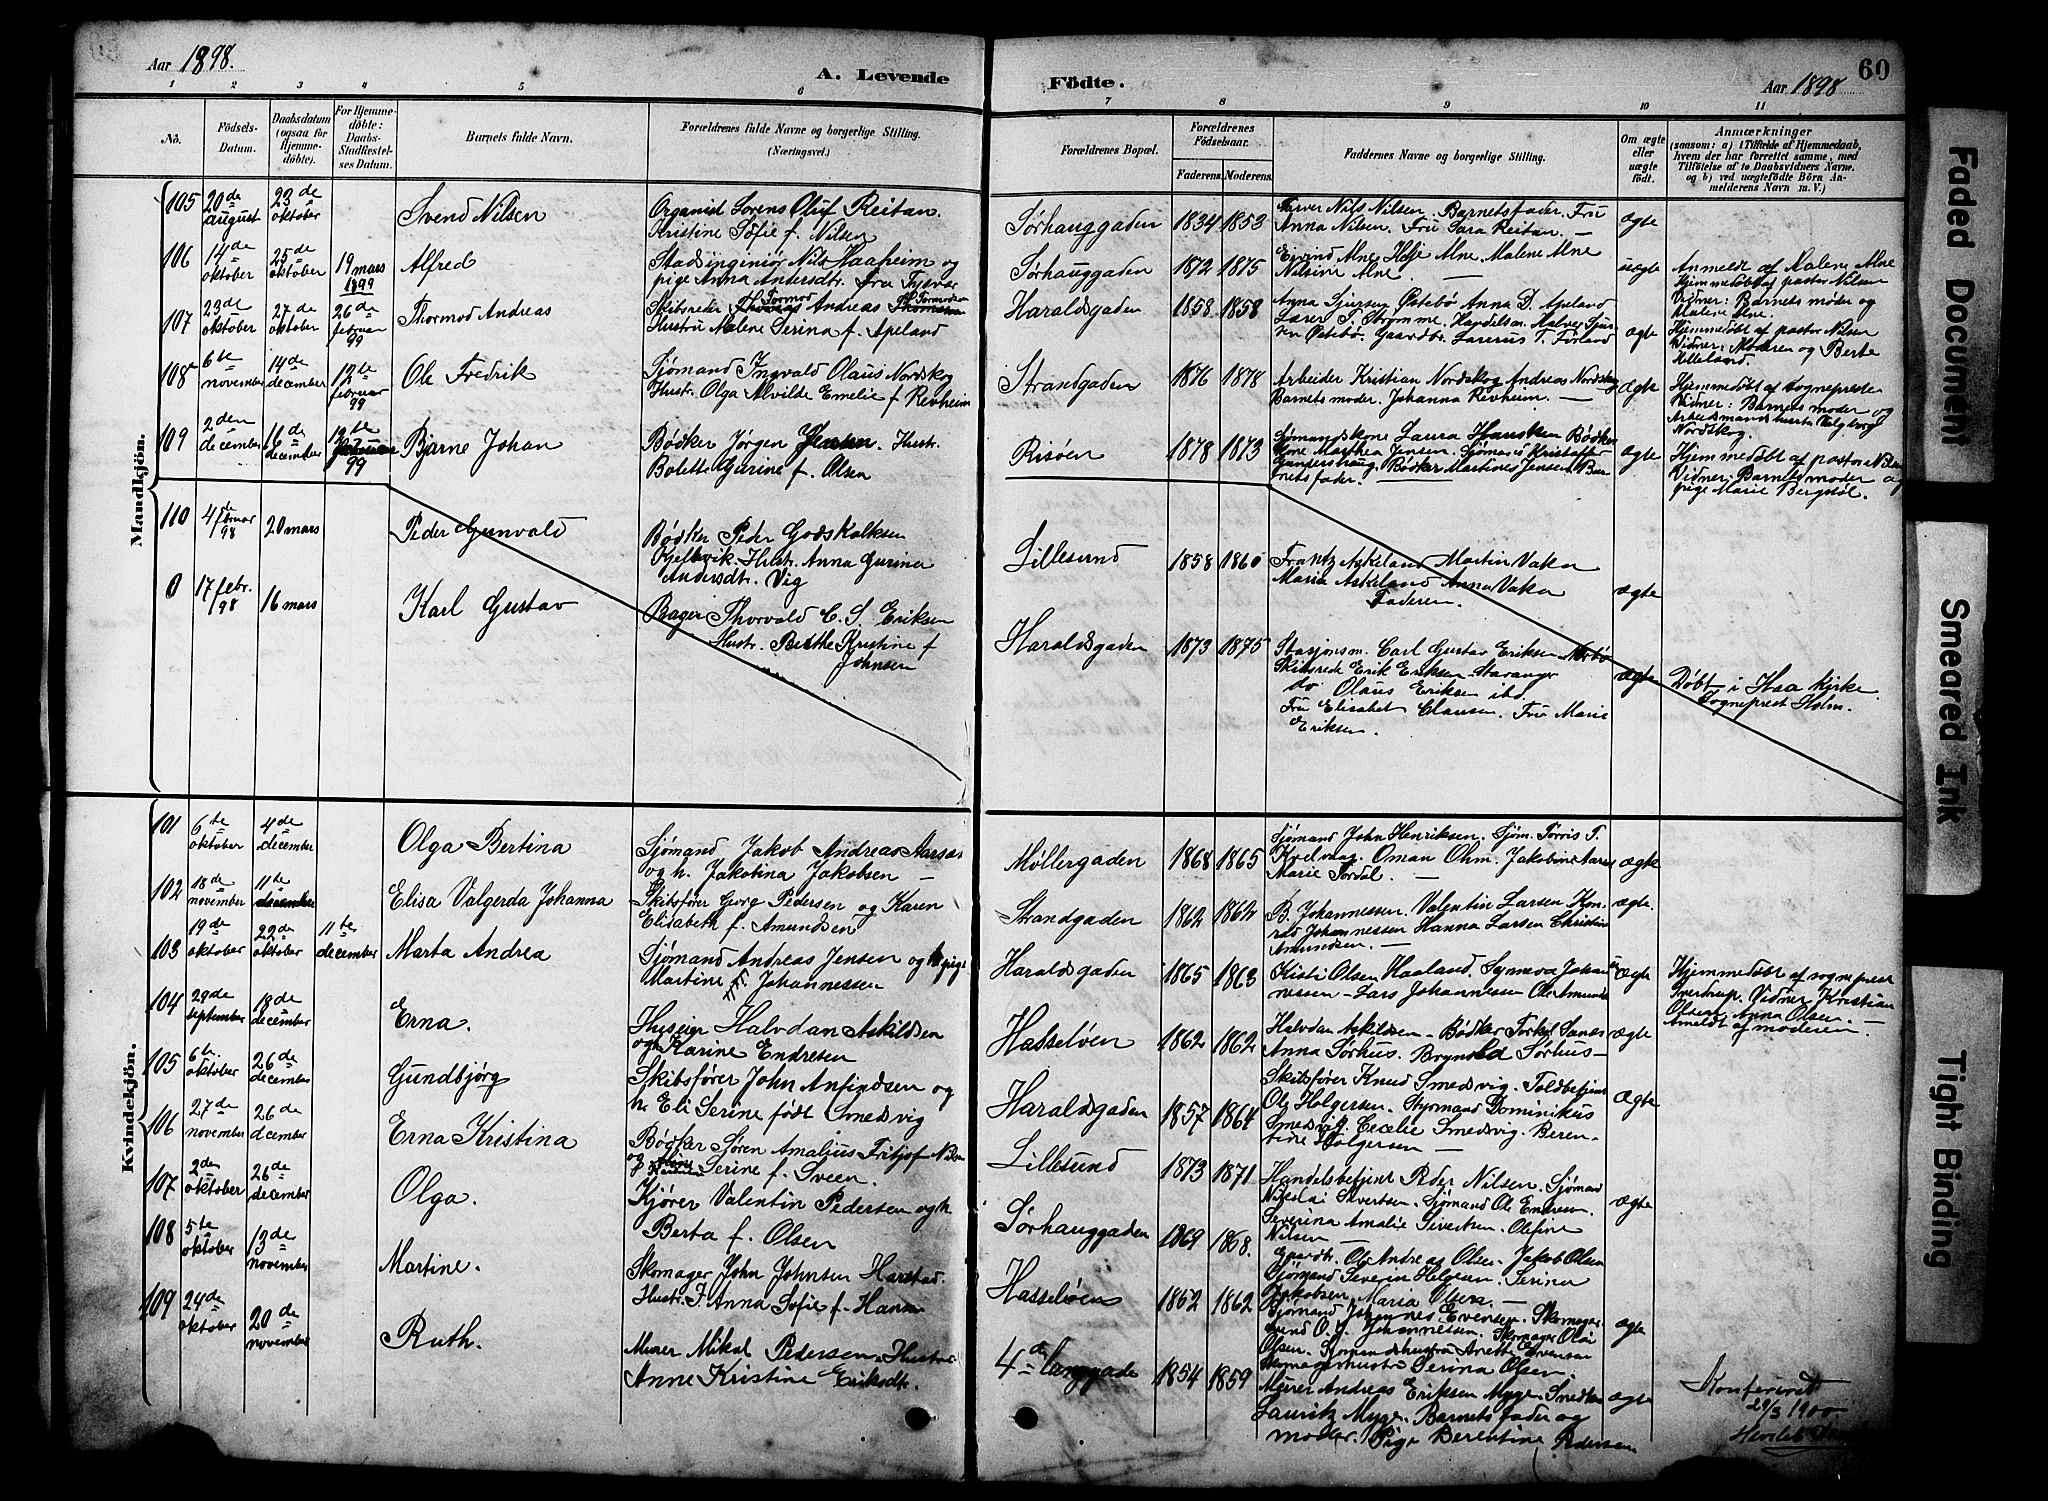 Aar 1898.
A. Levende
Födte.
Aar 1898
60
1 2 3 4 5 6 7 8 9 10 11
No.
Födsels-Datum.
Daabsdatum (ogsaa for Hjemmedöbte).
For Hjemmedöbte: Daabs-Stadfæstelses Datum.
Barnets fulde Navn.
Forældrenes fulde Navne og borgerlige Stilling.
(Næringsvei.)
Forældrenes Bopæl.
Forældrenes Födselsaar.
Faderens. Moderens.
Faddernes Navne og borgerlige Stilling.
Om ægte eller uægte födt.
Anmærkninger
(saasom: a) i Tilfælde af Hjemmedaab,
hvem der har forrettet samme, med
Tilföielse af to Daabsvidners Navne.
og b) ved uægtefödte Börn Anmelderens Navn m. V.)
Mandkjön.
105 20de august 23de oktober Svend Nilsen
Organist Lorens Oluf Reitan.
Kristine Sofie f. Nilsen
Sørhauggaden 1834 1853
Farver Nils Nilsen. Barnets fader. Fru
Anna Nilsen. Fru Sara Reitan. —
ægte
106 14de oktober 25de oktober 19 mars 1899 Alfred
Stadsingeniør Nils Haaheim og
pige Anna Andersdtr. fra Tysvær
Sørhauggaden 1872 1875
Eivind Alne Helje Alne. Malene Alne
Nilsine Alne
uægte
Anmeldt af Malene Alne
Hjemmedøbt af pastor Nilsen
Vidner: Barnets moder og
Malene Alne.
107 23de oktober 27de oktober 26de februar 99 Thormod Andreas
Skibsreder Tormod Andreas Tormodsen
Hustru Malene Serina f. Apeland
Haraldsgaden 1858 1858
Anna Sjursen Østebø Anna D. Apeland
Lærer T. Strømme. Handelsm. Malver Sjursen Østebø. Gaardbr. Laurius T. Førland
ægte
Hjemmedøbt af pastor Nilsen
Vidner: Moderen og Berte
Helleland.
108 6te november 14de december 12te februar 99 Ole Fredrik
Sjømand Ingvald Olaus Nordskog
Hustr. Olga Alvilde Emelie f. Revheim
Strandgaden 1876 1878
Arbeider Kristian Nordskog Andreas Nordskog
Barnets moder. Johanna Revheim. —
ægte
Hjemmedøbt af Sogneprest
Vidner: Barnets moder og
Arbeidsmandshustr. Valborg
Nordskog.
109 2den december 6de december 12te 99 Bjarne Johan
Bødker Jørgen Jensen. Hustr.
Bolette Gurine f. Olsen
Risøen 1878 1873
Sjømandskone Laura Hansken Bødkerkone Marthea Jensen. Sjømand Kristoffer
Bødker Martines Jensen Barnets fader.
ægte
Hjemmedøbt af pastor Nilsen
Vidner: Barnets moder og
pige Marie Bergstøl.
110 4de februar 98 20 mars Peder Gunvald
Bødker Peder Godskalksen
Kjelkevik. Hustr. Anna Gurina
Andersdtr. Vig
Lillesund 1858 1860
Frantz Askeland Martin Vaka
Maria Askeland Anna Vaka
Faderen.
ægte
0 17 febr. 98 16 mars Karl Gustav
Bager Thorvald C. S. Eriksen
Hustr. Berthe Kristine f
Johnsen
Haraldsgaden 1873 1875
Stasjonsm. Carl Gustav Eriksen Nærbø
Skibsrede Erik Eriksen Stavanger
do Olaus Eriksen ibd.
Fru Elisabet Clausen. Fru Marie
Eriksen.
ægte
Døbt i Haa kirke.
Sogneprest Holm.
Kvindekjön.
101 6te oktober 4de december Olga Bertina
Sjømand Jakob Andreas Aarsæ
og h. Jakobina Jakobsen —
Møllergaden 1868 1865
Sjømand John Henriksen. Sjøm. Torris T.
Kvelvaag. Oman Ohm. Jakobine
Marie Tordal. —
ægte
102 18de november 11te december Elisa Valgerda Johanna
Skibsfører Georg Pedersen og Karen
Elisabeth f. Amundsen
Strandgaden 1862 1862
B. Johannessen. Valentin Larsen Konrad Johannessen Hanna Larsen Christine
Amundsen. —
ægte.
103 19de oktober 22de oktober 11te december Marta Andrea
Sjømand Andreas Jensen og
Martine Johannessen
Haraldsgaden 1865 1863
Kisti Olsen Haaland. Synneva Johannessen — Lars Johannessen Ole Amunds
ægte
Hjemmedøbt af sogneprest
Sverdrup. Vidner Kristian
Olsen. Anna Olsen. —
Ameldt af moderen
104 29de september 18de december Erna.
Huseier Halvdan Askildsen
og h Karine Endresen
Hasseløen 1862 1862
Halvdan Askildsen. Bødker Torkel Sanes
Anna Sørhus. Brynold Sørhus —
ægte
105 6te oktober 26de december Gundbjørg
Skibsfører John Anfindsen og
h. Eli Serine født Smedsvig
Haraldsgaden 1857 1864
Skibsfører Knud Smedsvig. Toldbetjent
Ole Holgersen. Styrmand Dominikus
Smedsvig. Cecelie Smedsvig. Berentine Holgersen —
ægte
106 27de november 26de december Erna Kristina
Bødker Søren Amalius Fritjof Nilsen
og Serine f. Sveen.
Lillesund 1873 1871
Handelsbetjent Peder Nilsen. Sjømand
Nikolai Sivertsen. Sjømand Ole Endresen.
Severina Amalie Sivertsen. Olefine
Nilsen —
ægte
107 2den oktober 26de december Olga.
Kjører Valentin Pedersen og h.
Berta f. Olsen
Sørhauggaden 1869 1868.
Gaardbr. Ole Andreas Olsen. Jakob Olsen
Sjømand Severin Helgesen. Serina
Jakobsen, Maria Olsen. —
108 5te oktober 13de november Martine.
Skomager John Johnsen Harstad.
Hustr. J. Anna Sofie f. Hansen
Hasseløen 1862 1862
Sjømand Johannes Evensen. Skomagersvend O. J. Johannessen. Skomager Olai
Olsen. Anette Evensen
Skomagerhustr. Serina Olsen.
ægte
109 24de oktober 20de november Ruth.
Murer Mikal Pedersen. Hustr.
Anne Kristine Eriksdtr.
4de langgade 1854 1859
Murer Andreas Eriksen Myge. Smed
Lauritz Myge. Barnets fader og
moder. Pige Berentine Pedersen
ægte
Konfereret
29/3 1900.
Faded Document
Smeared Ink
Tight Binding